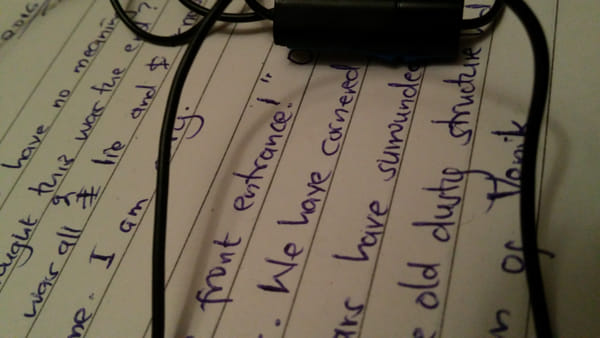 2016
have no meaning
ought this was the end?
was all a lie and
me. I am
front entrance!"
. We have cornered
ars have surrounded
e old dusty structure
of